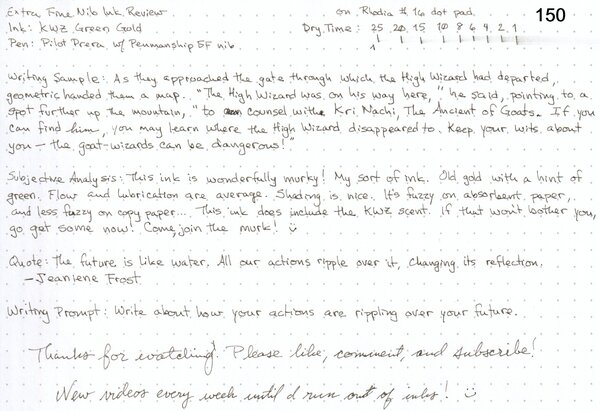 Extra Fine Nib Ink Review on Rhodia #16 dot pad. 150
Ink: KWZ Green Gold Dry Time: 25 20 15 10 8 6 4 2 1
Pen: Pilot Prera w/ Penmanship EF nib
Writing Sample: As they approached the gate through which the High Wizard had departed,
geometric handed them a map. "The High Wizard was on his way here," he said, pointing to a
spot further up the mountain, "to counsel with Kri Nachi, The Ancient of Goats. If you
can find him, you may learn where the High Wizard disappeared to. Keep your wits about
you — the goat-wizards can be dangerous!"
Subjective Analysis: This ink is wonderfully murky! My sort of ink. Old gold with a hint of
green. Flow and lubrication are average. Shading is nice. It's fuzzy on absorbent paper,
and less fuzzy on copy paper.... This ink does include the KWZ scent. if that won't bother you,
go get some now! Come, join the murk! :)
Quote: The future is like water. All our actions ripple over it, changing its reflection.
— Jeaniene Frost
Writing Prompt: Write about how your actions are rippling over your future.
Thanks for watching! Please like, comment, and subscribe!
New videos every week until I run out of inks! :)